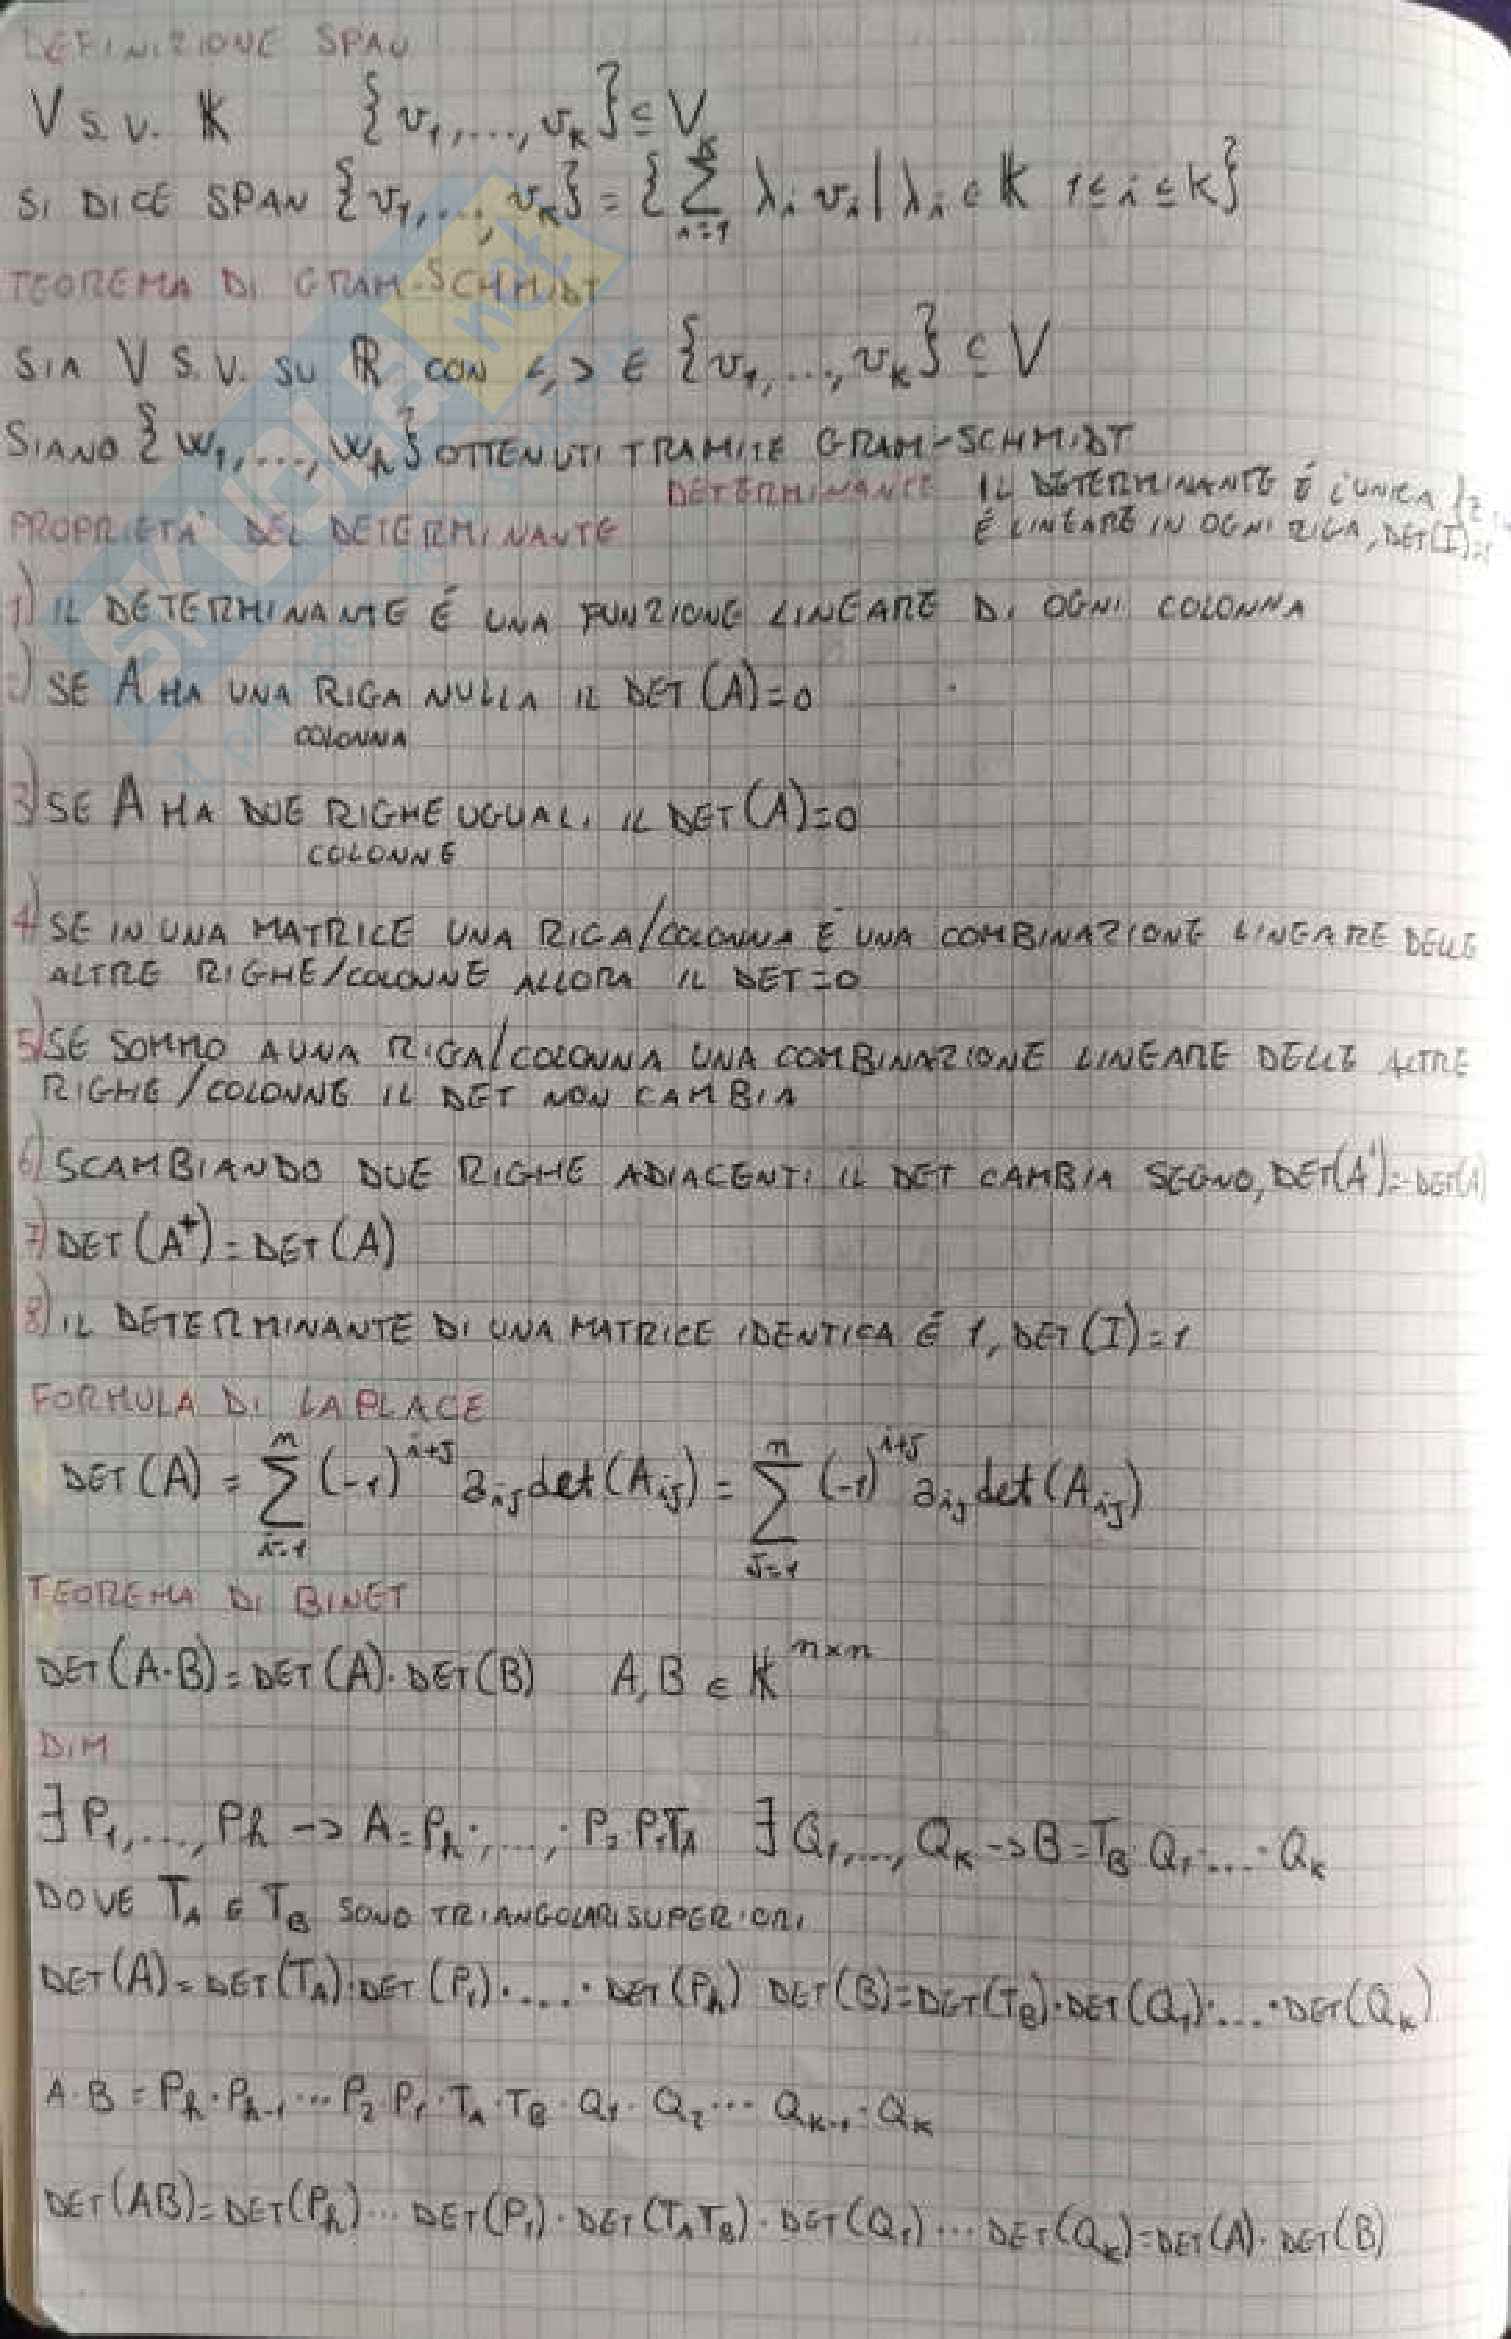 DEFINIZIONE SPAN
V S.V. 𝕂 {v₁,...,vₖ} ⊆ V
SI DICE SPAN {v₁,...,vₖ} = {∑ᵢ₌₁ᵏ λᵢ vᵢ | λᵢ ∈ 𝕂 1≤i≤k}
TEOREMA DI GRAM-SCHMIDT
SIA V S.V. SU ℝ CON <,> E {v₁,...,vₖ} ⊆ V
SIANO {w₁,...,wₕ} OTTENUTI TRAMITE GRAM-SCHMIDT
DETERMINANTE IL DETERMINANTE É L'UNICA
É LINEARE IN OGNI RIGA, DET(I)=1
PROPRIETA' DEL DETERMINANTE
1) IL DETERMINANTE É UNA FUNZIONE LINEARE DI OGNI COLONNA
) SE A HA UNA RIGA NULLA IL DET(A)=0
COLONNA
3) SE A HA DUE RIGHE UGUALI IL DET(A)=0
COLONNE
4) SE IN UNA MATRICE UNA RIGA/COLONNA É UNA COMBINAZIONE LINEARE DELLE
ALTRE RIGHE/COLONNE ALLORA IL DET=0
5) SE SOMMO A UNA RIGA/COLONNA UNA COMBINAZIONE LINEARE DELLE ALTRE
RIGHE/COLONNE IL DET NON CAMBIA
6) SCAMBIANDO DUE RIGHE ADIACENTI IL DET CAMBIA SEGNO, DET(A')=-DET(A)
7) DET(Aᵗ)=DET(A)
8) IL DETERMINANTE DI UNA MATRICE IDENTICA É 1, DET(I)=1
FORMULA DI LAPLACE
DET(A) = ∑ᵢ₌₁ⁿ (-1)ⁱ⁺ʲ aᵢⱼ det(Aᵢⱼ) = ∑ⱼ₌₁ⁿ (-1)ⁱ⁺ʲ aᵢⱼ det(Aᵢⱼ)
TEOREMA DI BINET
DET(A·B)=DET(A)·DET(B) A,B ∈ 𝕂ⁿˣⁿ
DIM
∃ P₁,...,Pₕ -> A=Pₕ·,...,·P₂ P₁T_A ∃ Q₁,...,Qₖ -> B=T_B·Q₁·...·Qₖ
DOVE T_A E T_B SONO TRIANGOLARI SUPERIORI
DET(A)=DET(T_A)·DET(P₁)·...·DET(Pₕ) DET(B)=DET(T_B)·DET(Q₁)·...·DET(Qₖ)
A·B=Pₕ·Pₕ₋₁...P₂ P₁·T_A·T_B·Q₁·Q₂...Qₖ₋₁·Qₖ
DET(AB)=DET(Pₕ)...DET(P₁)·DET(T_A T_B)·DET(Q₁)...DET(Qₖ)=DET(A)·DET(B)
SKUOLA.net